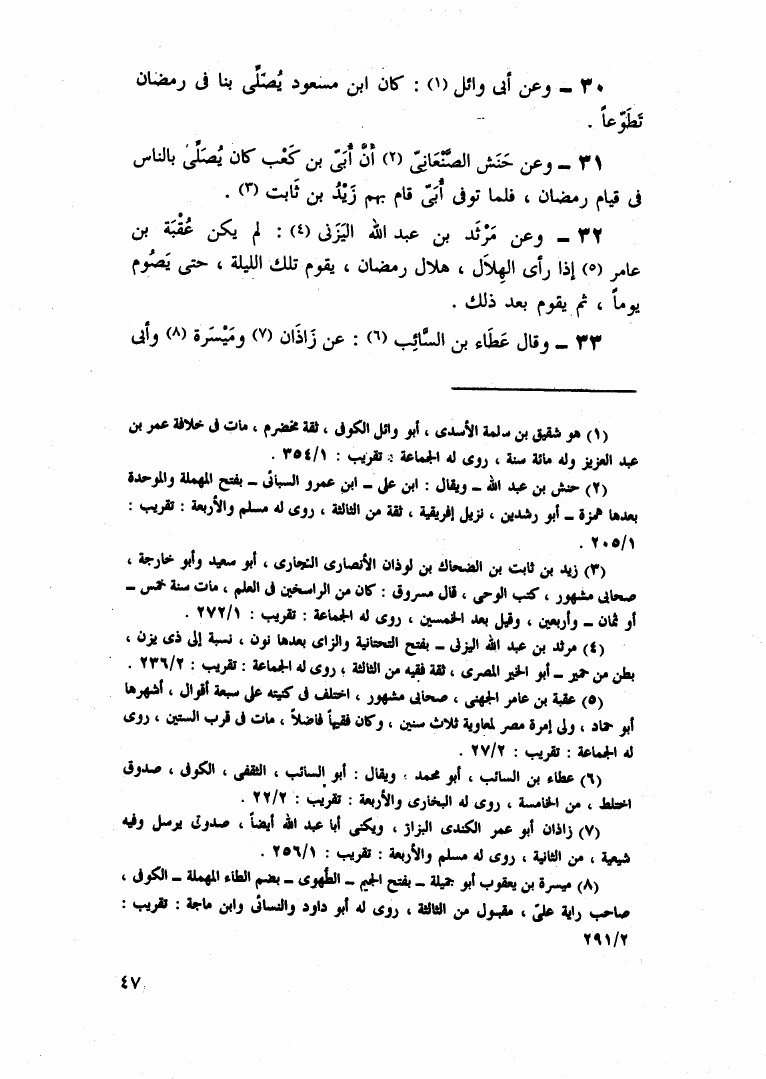 ٣٠ – وعن أبى وائل (١) : كان ابن مسعود يُصَلِّى بنا فى رمضان
تَطَوّعاً .
٣١ – وعن حَنَش الصَّنْعَانِىّ (٢) أَنَّ أُبَىّ بن كَعْب كان يُصَلِّى بالناس
فى قيام رمضان ، فلما توفى أُبَىّ قام بهم زَيْدُ بن ثَابت (٣) .
٣٢ – وعن مَرْثَد بن عبد الله اليَزَنى (٤) : لم يكن عُقْبَة بن
عامر (٥) إذا رأى الهِلاَل ، هلال رمضان ، يقوم تلك الليلة ، حتى يَصُوم
يوماً ، ثم يقوم بعد ذلك .
٣٣ – وقال عَطَاء بن السَّائِب (٦) : عن زَاذَان (٧) ومَيْسَرة (٨) وأبى
(١) هو شقيق بن سلمة الأسدى ، أبو وائل الكوفى ، ثقة مخضرم ، مات فى خلافة عمر بن
عبد العزيز وله مائة سنة ، روى له الجماعة : تقريب : ٣٥٤/١ .
(٢) حنش بن عبد الله – ويقال : ابن على – ابن عمرو السبائى – بفتح المهملة والموحدة
بعدها همزة – أبو رشدين ، نزيل إفريقية ، ثقة من الثالثة ، روى له مسلم والأربعة : تقريب :
٢٠٥/١ .
(٣) زيد بن ثابت بن الضحاك بن لوذان الأنصارى النجارى ، أبو سعيد وأبو خارجة ،
صحابى مشهور ، كتب الوحى ، قال مسروق : كان من الراسخين فى العلم ، مات سنة خمس –
أو ثمان – وأربعين ، وقيل بعد الخمسين ، روى له الجماعة : تقريب : ٢٧٢/١ .
(٤) مرثد بن عبد الله اليزنى – بفتح التحتانية والزاى بعدها نون ، نسبة إلى ذى يزن ،
بطن من حمير – أبو الخير المصرى ، ثقة فقيه من الثالثة ، روى له الجماعة : تقريب : ٢٣٦/٢ .
(٥) عقبة بن عامر الجهنى ، صحابى مشهور ، اختلف فى كنيته على سبعة أقوال ، أشهرها
أبو حماد ، ولى إمرة مصر لمعاوية ثلاث سنين ، وكان فقيهاً فاضلاً ، مات فى قرب الستين ، روى
له الجماعة : تقريب : ٢٧/٢ .
(٦) عطاء بن السائب ، أبو محمد ، ويقال : أبو السائب ، الثقفى ، الكوفى ، صدوق
اختلط ، من الخامسة ، روى له البخارى والأربعة : تقريب : ٢٢/٢ .
(٧) زاذان أبو عمر الكندى البزاز ، ويكنى أبا عبد الله أيضاً ، صدوق يرسل وفيه
شيعية ، من الثانية ، روى له مسلم والأربعة : تقريب : ٢٥٦/١ .
(٨) ميسرة بن يعقوب أبو جميلة – بفتح الجيم – الطُّهوى – بضم الطاء المهملة – الكوفى ،
صاحب راية علىّ ، مقبول من الثالثة ، روى له أبو داود والنسائى وابن ماجة : تقريب :
٢٩١/٢
٤٧